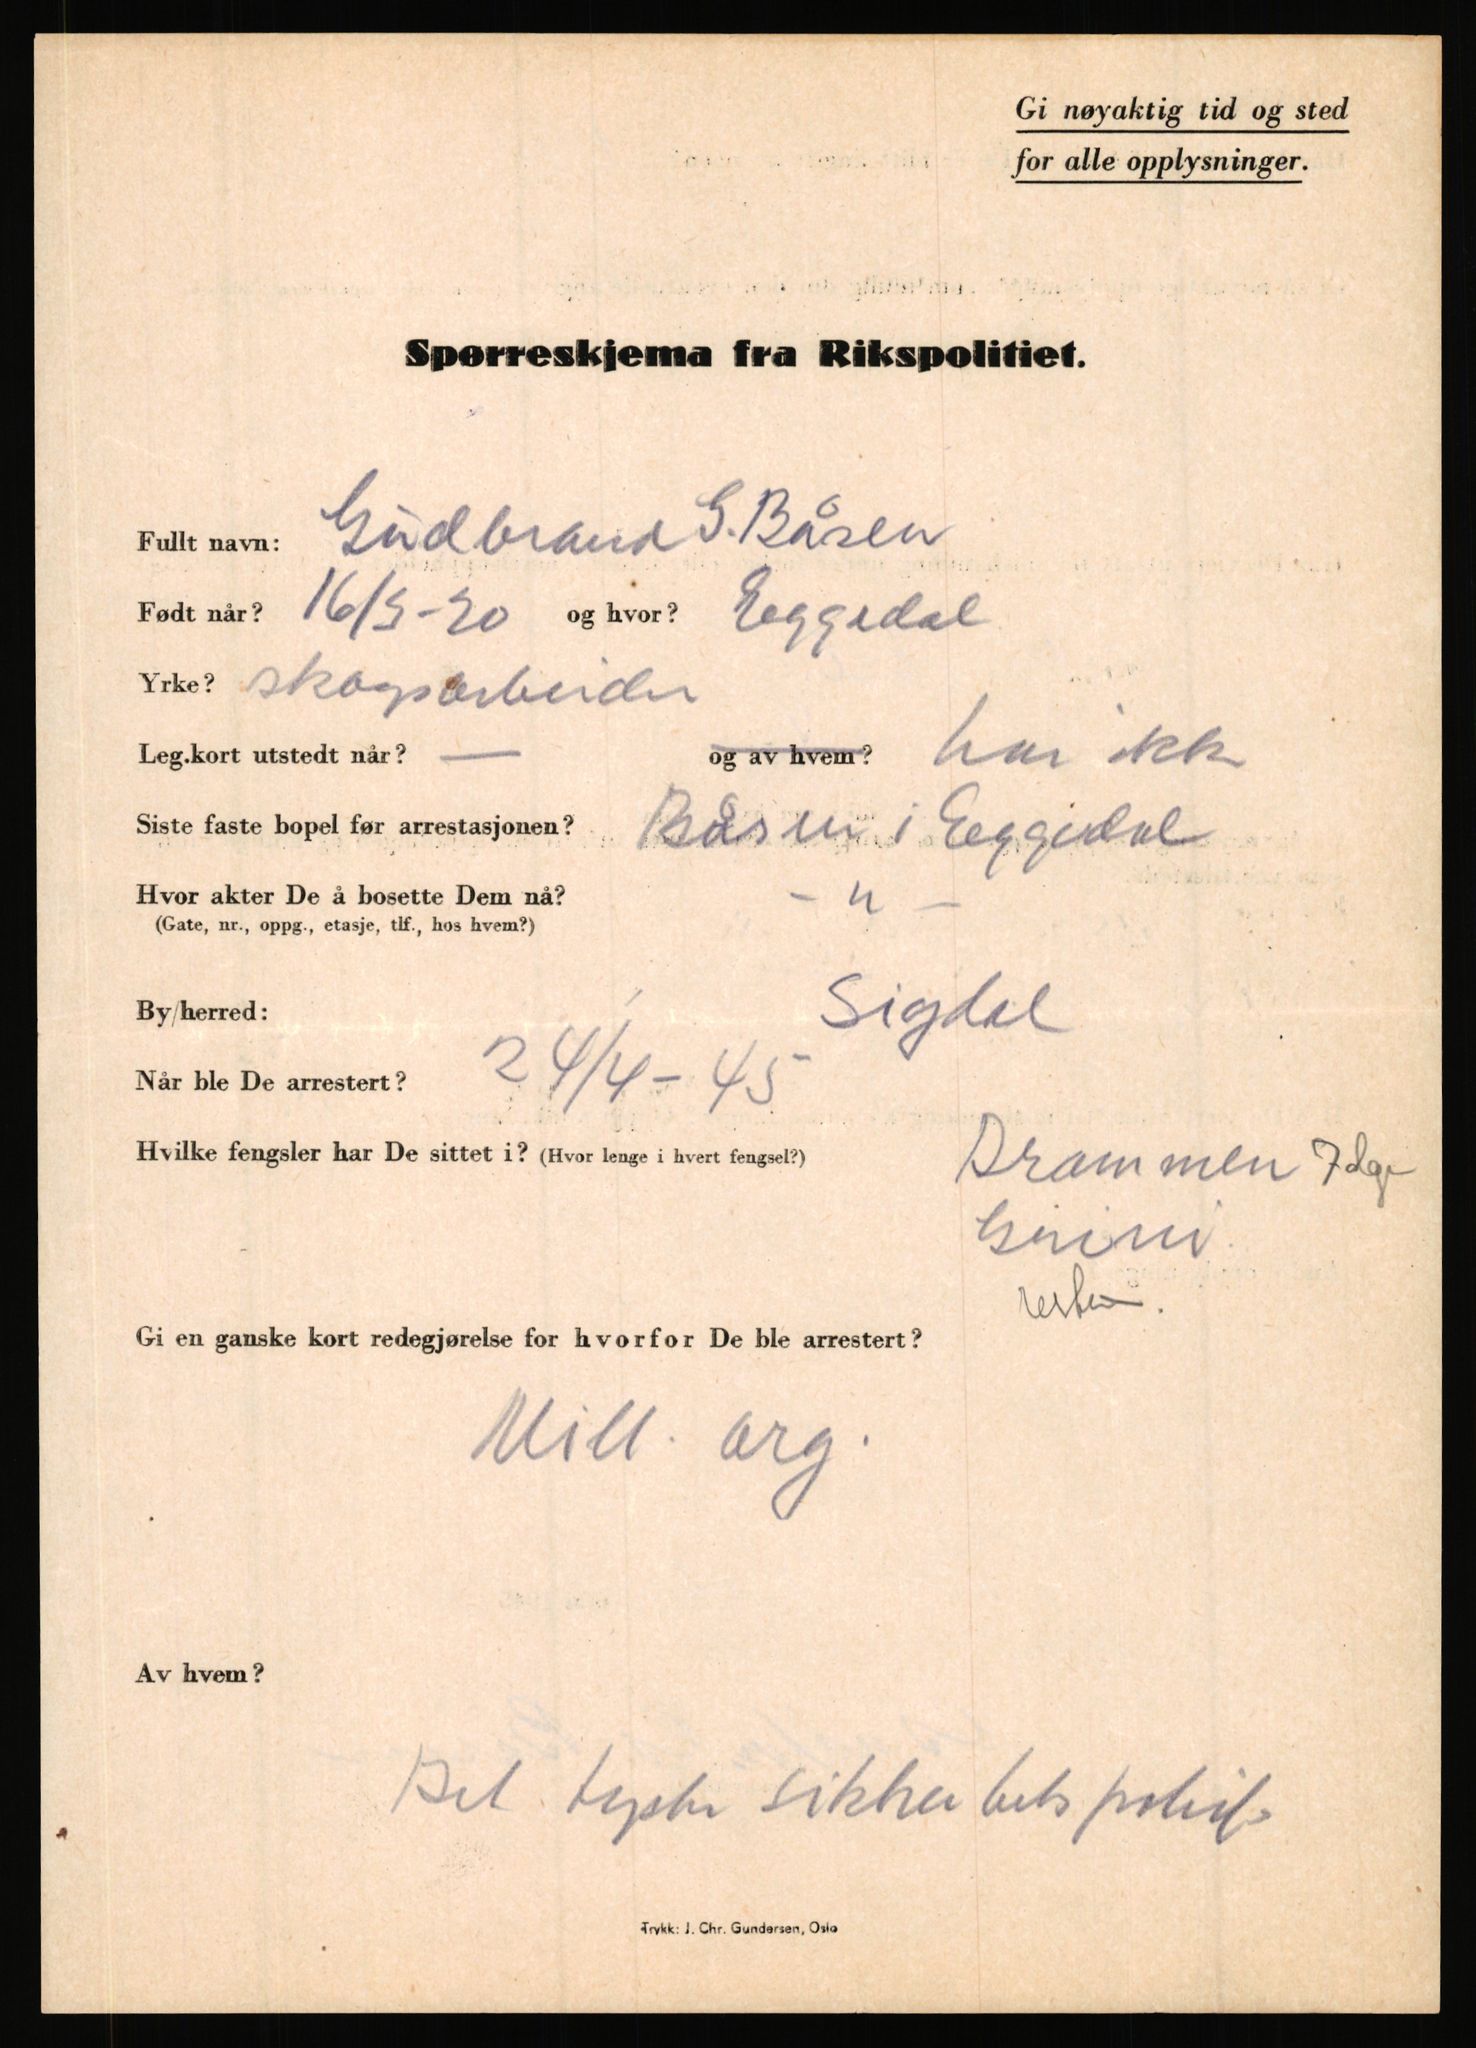 Gi nøyaktig tid og sted
for alle opplysninger.
Spørreskjema fra Rikspolitiet.
Fullt navn: Gudbrand G. Båsen
Født når? 16/5-20 og hvor? Eggedal
Yrke? skogsarbeider
Leg.kort utstedt når? — og av hvem? har ikk
Siste faste bopel før arrestasjonen? Båsen i Eggedal
Hvor akter De å bosette Dem nå? - " -
(Gate, nr., oppg., etasje, tlf., hos hvem?)
By/herred: Sigdal
Når ble De arrestert? 24/4-45
Hvilke fengsler har De sittet i? (Hvor lenge i hvert fengsel?) Drammen 7 dge
Grini
resten.
Gi en ganske kort redegjørelse for hvorfor De ble arrestert?
Mill. org.
Av hvem?
Det tyske sikkerhetspoliti
Trykk: J. Chr. Gundersen, Oslo